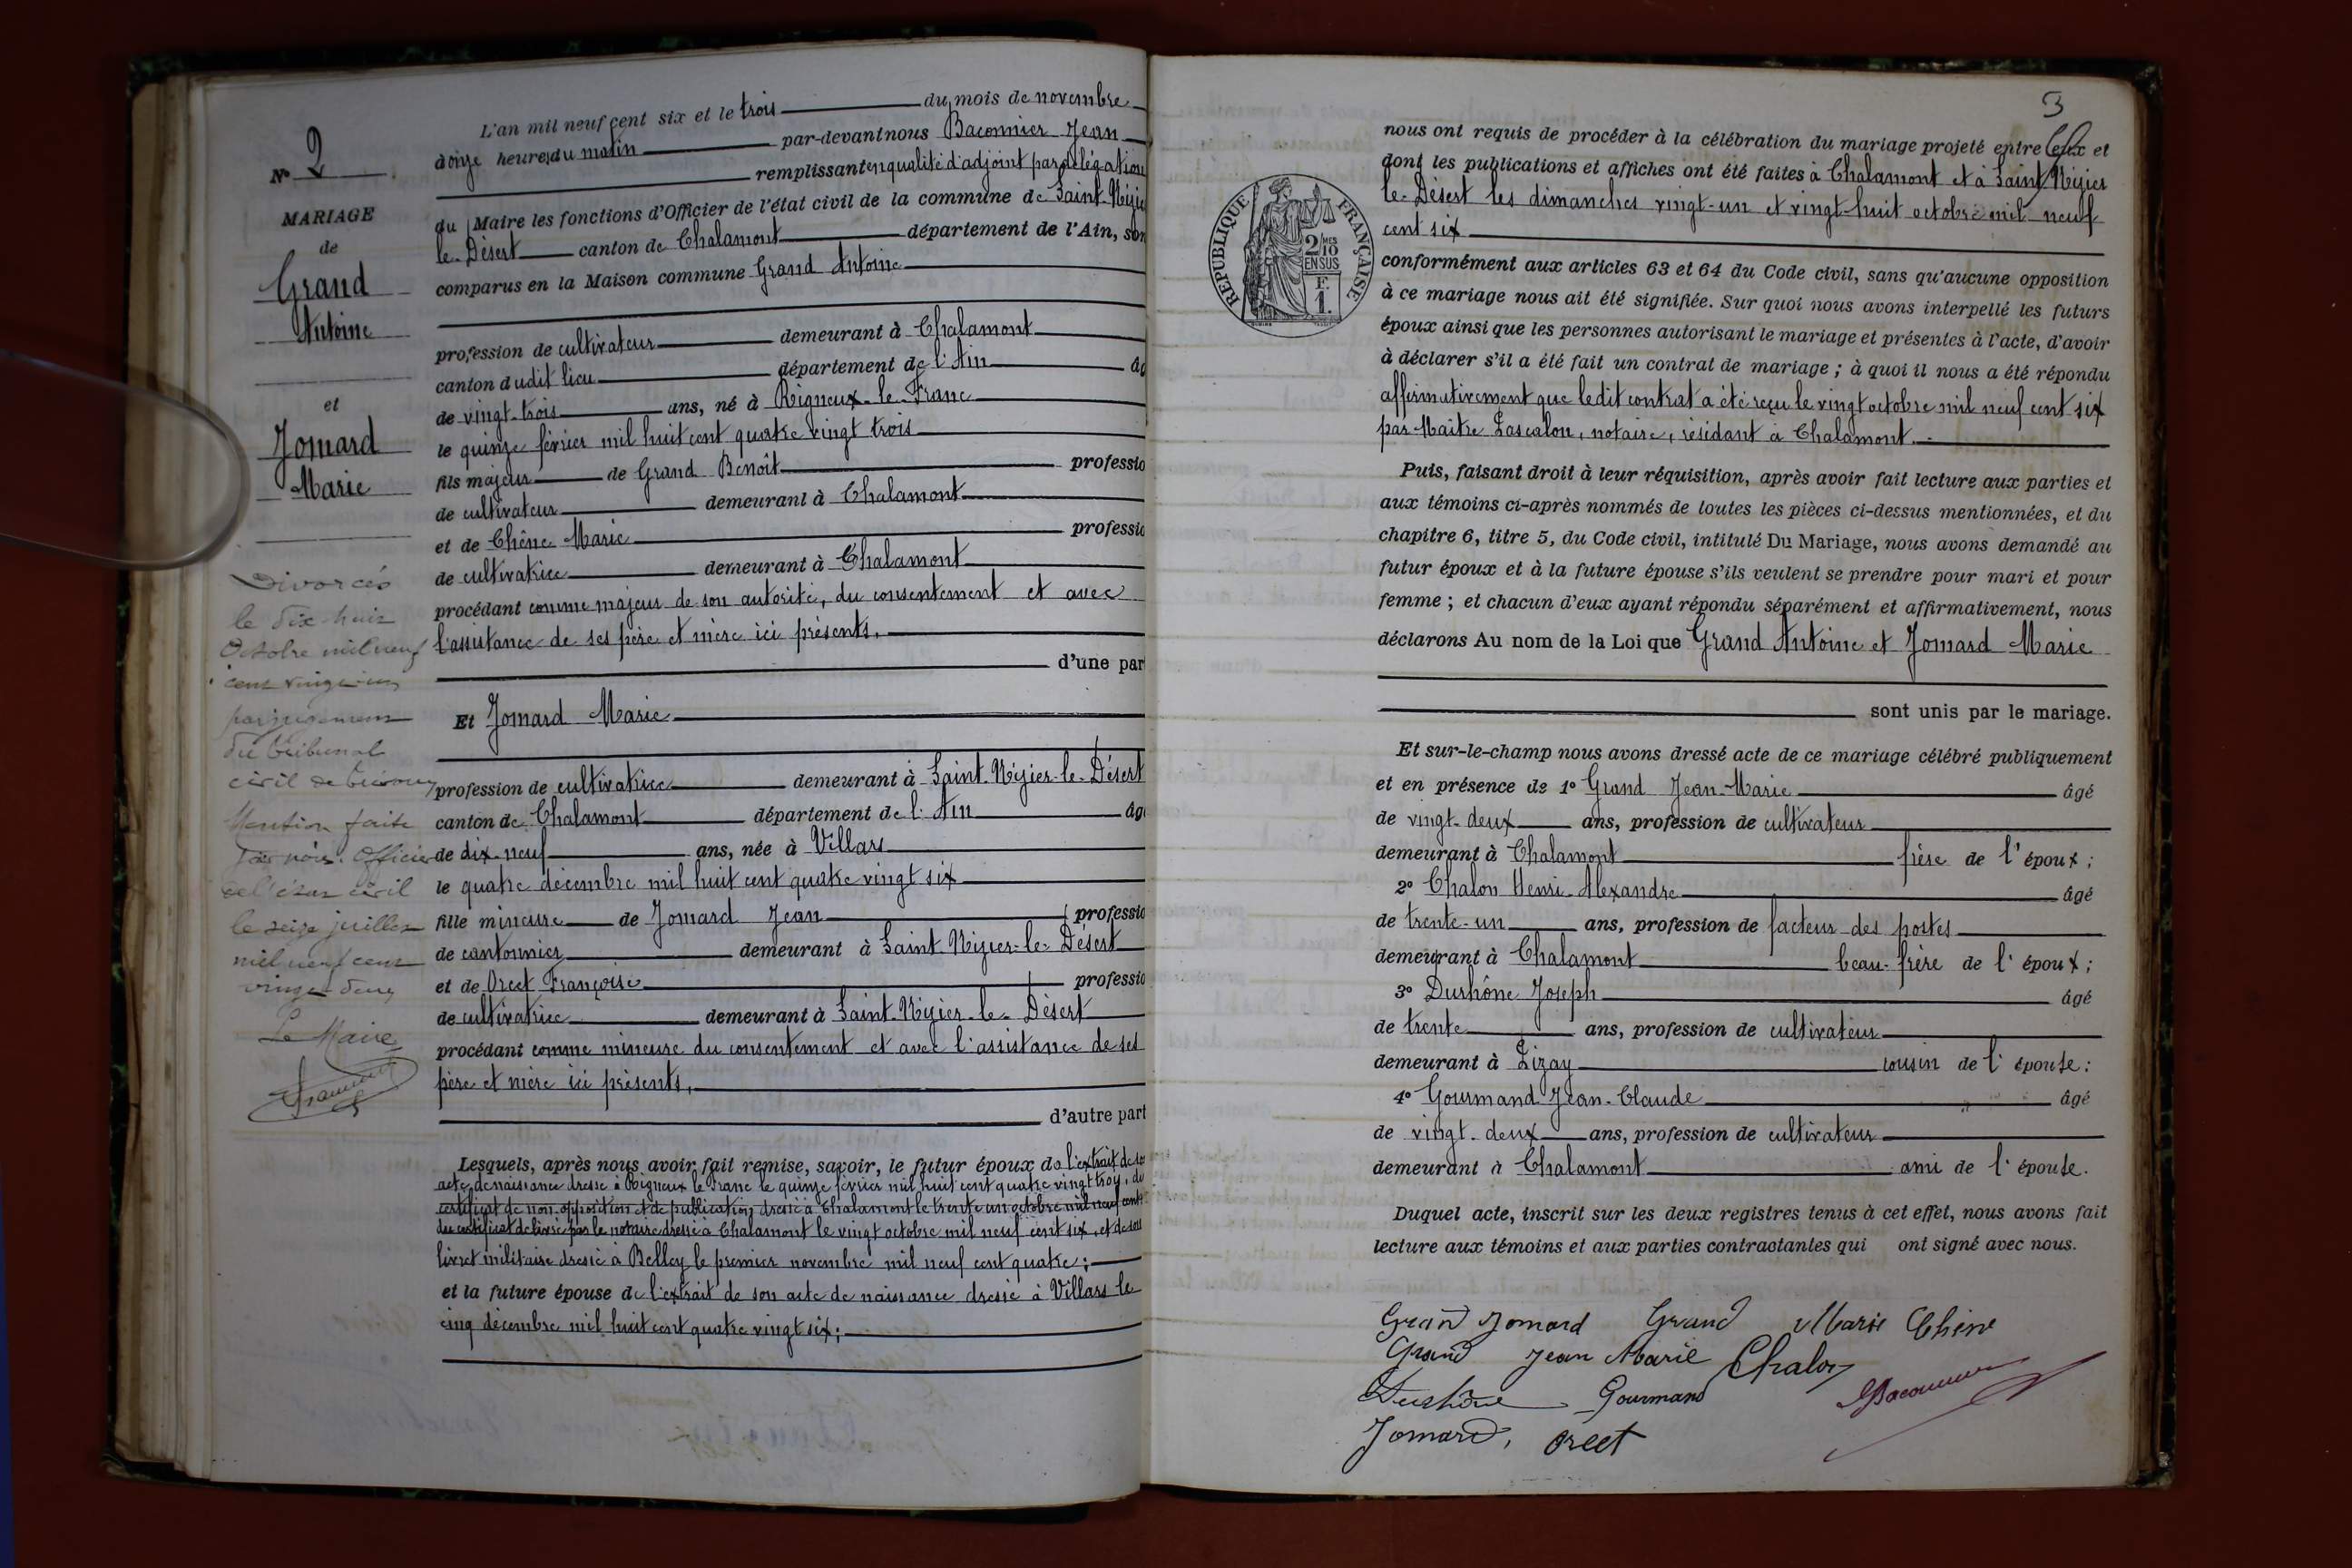 N° 2
MARIAGE
de
Grand
Antoine
et
Jomard
Marie
Divorcés
le dix-huit
Octobre mil neuf
cent vingt-un
par jugement
du tribunal
civil de Trévoux
Mention faite
par nous Officier
de l'état civil
le seize juillet
mil neuf cent
vingt-deux
Le Maire
L'an mil neuf cent six et le trois du mois de novembre
à onze heures du matin par-devant nous Baconnier Jean
remplissant en qualité d'adjoint par délégation
du Maire les fonctions d'Officier de l'état civil de la commune de Saint-Nizier
le-Désert canton de Chalamont département de l'Ain, son
comparus en la Maison commune Grand Antoine
profession de cultivateur demeurant à Chalamont
canton dudit lieu département de l'Ain âg
de vingt-trois ans, né à Rigneux-le-Franc
le quinze février mil huit cent quatre vingt trois
fils majeur de Grand Benoît professio
de cultivateur demeurant à Chalamont
et de Chêne Marie professio
de cultivatrice demeurant à Chalamont
procédant comme majeur de son autorité, du consentement et avec
l'assistance de ses père et mère ici présents.
d'une par
Et Jomard Marie
profession de cultivatrice demeurant à Saint-Nizier-le-Désert
canton de Chalamont département de l'Ain âg
de dix-neuf ans, née à Villars
le quatre décembre mil huit cent quatre vingt six
fille mineure de Jomard Jean professio
de cantonnier demeurant à Saint-Nizier-le-Désert
et de Orcet Françoise professio
de cultivatrice demeurant à Saint-Nizier-le-Désert
procédant comme mineure du consentement et avec l'assistance de ses
père et mère ici présents,
d'autre part
Lesquels, après nous avoir fait remise, savoir, le futur époux de l'extrait de so
acte de naissance dressé à Rigneux le Franc le quinze février mil huit cent quatre vingt trois, du
certificat de non opposition et de publication dressé à Chalamont le trente un octobre mil neuf cent
du certificat délivré par le notaire dressé à Chalamont le vingt octobre mil neuf cent six, et de son
livret militaire dressé à Belley le premier novembre mil neuf cent quatre;
et la future épouse de l'extrait de son acte de naissance dressé à Villars le
cinq décembre mil huit cent quatre vingt six;
3
nous ont requis de procéder à la célébration du mariage projeté entre eux et
dont les publications et affiches ont été faites à Chalamont et à Saint Nizier
le-Désert les dimanches vingt-un et vingt-huit octobre mil neuf
cent six
RÉPUBLIQUE FRANÇAISE
2/10 MES
EN SUS
F.
1.
conformément aux articles 63 et 64 du Code civil, sans qu'aucune opposition
à ce mariage nous ait été signifiée. Sur quoi nous avons interpellé les futurs
époux ainsi que les personnes autorisant le mariage et présentes à l'acte, d'avoir
à déclarer s'il a été fait un contrat de mariage ; à quoi il nous a été répondu
affirmativement que ledit contrat a été reçu le vingt octobre mil neuf cent six
par Maître Lascalon, notaire, résidant à Chalamont.
Puis, faisant droit à leur réquisition, après avoir fait lecture aux parties et
aux témoins ci-après nommés de toutes les pièces ci-dessus mentionnées, et du
chapitre 6, titre 5, du Code civil, intitulé Du Mariage, nous avons demandé au
futur époux et à la future épouse s'ils veulent se prendre pour mari et pour
femme ; et chacun d'eux ayant répondu séparément et affirmativement, nous
déclarons Au nom de la Loi que Grand Antoine et Jomard Marie
sont unis par le mariage.
Et sur-le-champ nous avons dressé acte de ce mariage célébré publiquement
et en présence de 1° Grand Jean-Marie âgé
de vingt-deux ans, profession de cultivateur
demeurant à Chalamont frère de l'époux ;
2° Chalon Henri-Alexandre âgé
de trente-un ans, profession de facteur des postes
demeurant à Chalamont beau-frère de l'époux ;
3° Durhône Joseph âgé
de trente ans, profession de cultivateur
demeurant à Lizay cousin de l'épouse :
4° Gourmand Jean-Claude âgé
de vingt-deux ans, profession de cultivateur
demeurant à Chalamont ami de l'épouse.
Duquel acte, inscrit sur les deux registres tenus à cet effet, nous avons fait
lecture aux témoins et aux parties contractantes qui ont signé avec nous.
Grand Jomard Grand Marie Chêne
Grand Jean Marie Chalon
Durhône Gourmand Baconnier
Jomard, Orcet